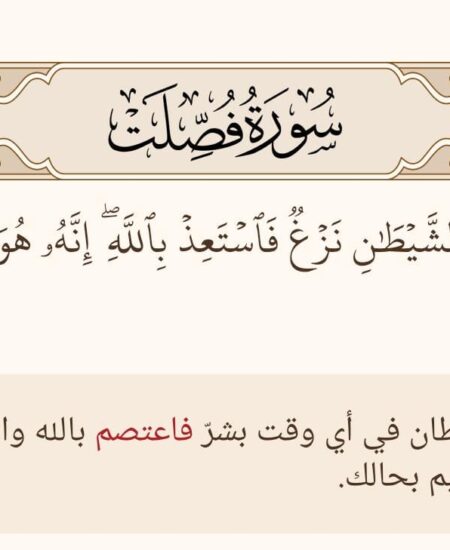 سُورَةُ فُصِّلَتْ
ٱلشَّيۡطَٰنِ نَزۡغٞ فَٱسۡتَعِذۡ بِٱللَّهِۖ إِنَّهُۥ هُوَ
طان في أي وقت بشرّ فاعتصم بالله وا
يم بحالك.